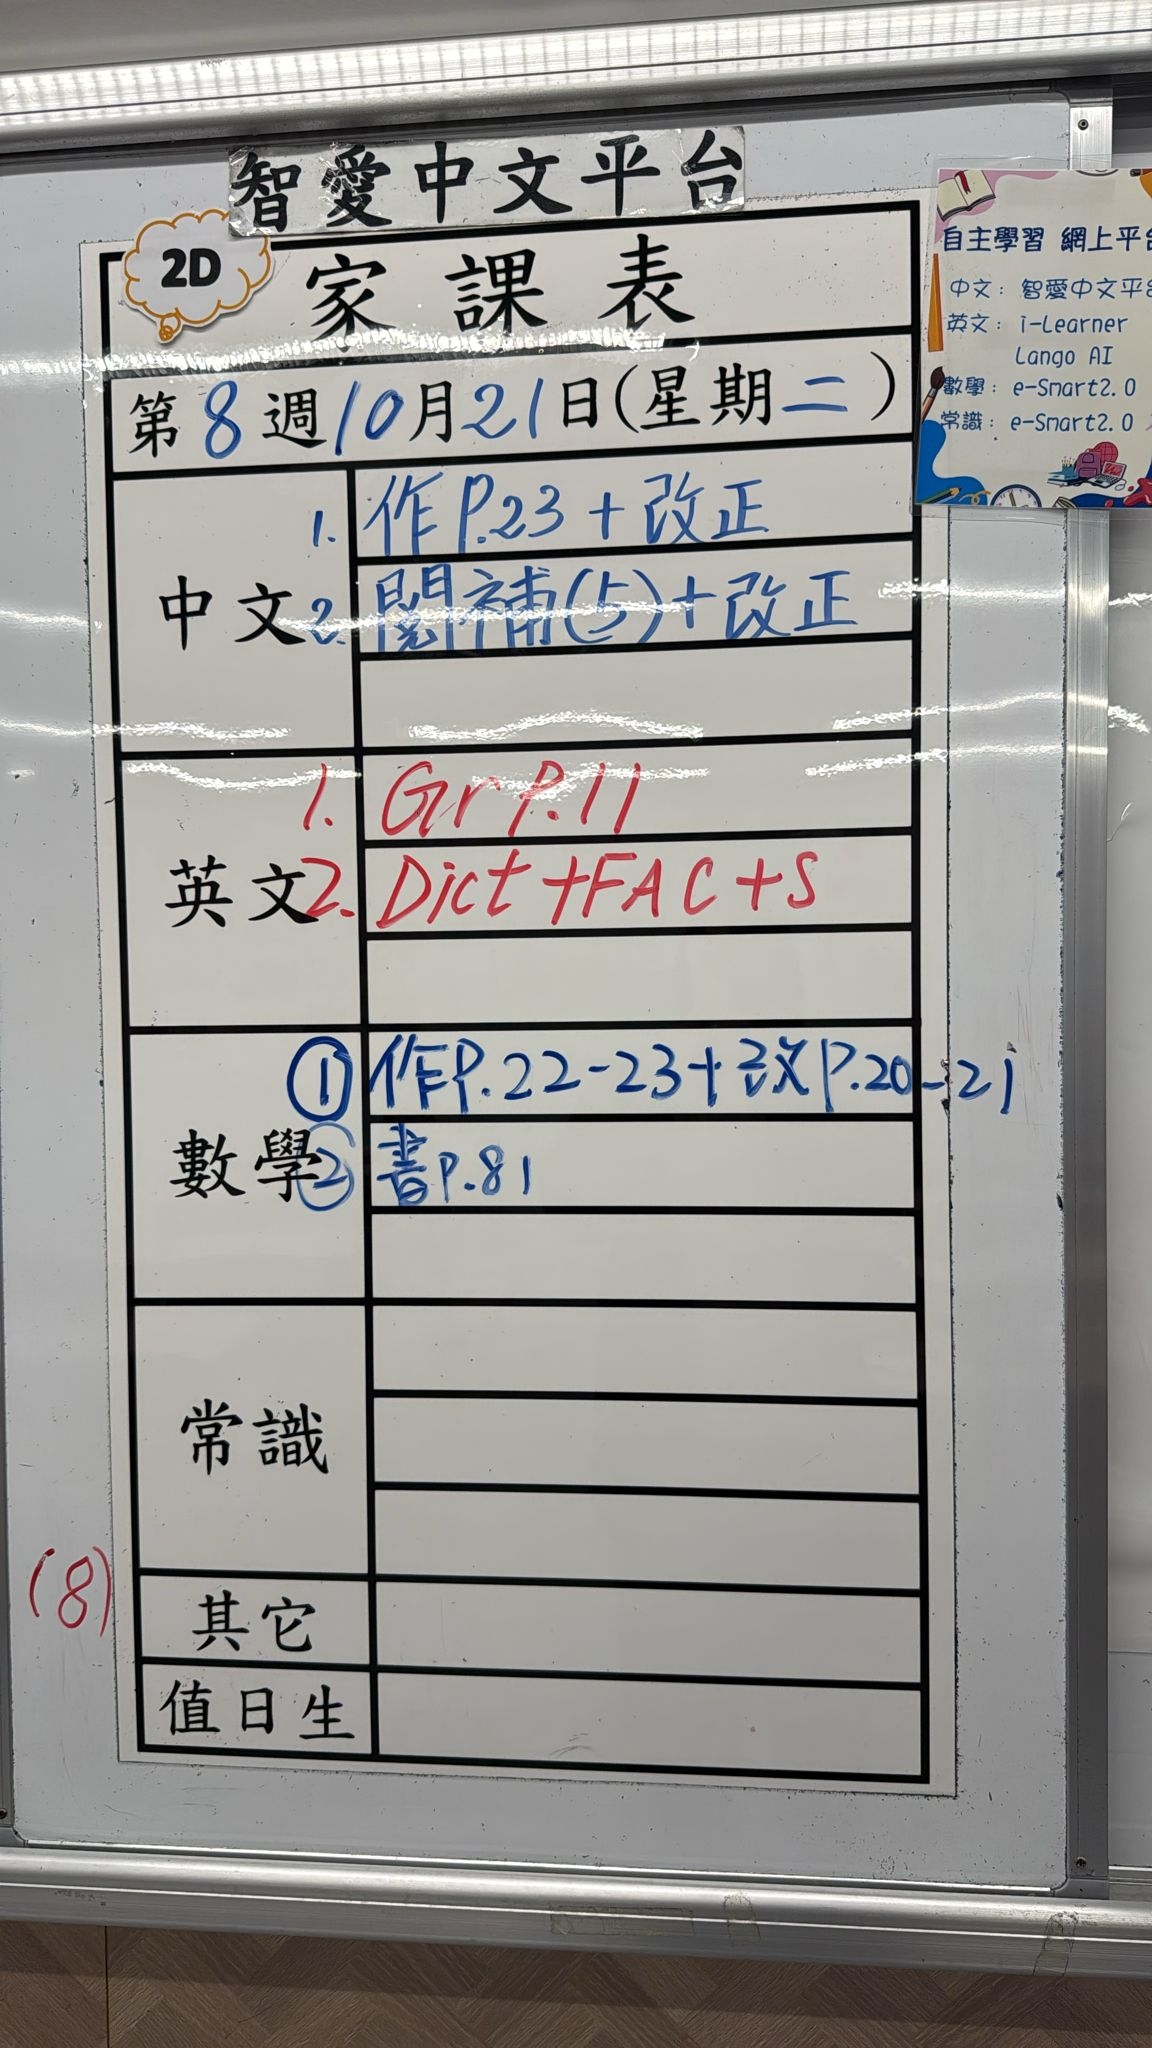 智愛中文平台
2D
家課表
第8週10月21日(星期二)
中文
1. 作P.23+改正
2. 閱補(5)+改正
英文
1. Gr P.11
2. Dict+FAC+S
數學
① 作P.22-23+改P.20-21
② 書P.81
常識
其它
值日生
(8)
自主學習 網上平台
中文：智愛中文平台
英文：i-Learner
Lango AI
數學：e-Smart2.0
常識：e-Smart2.0